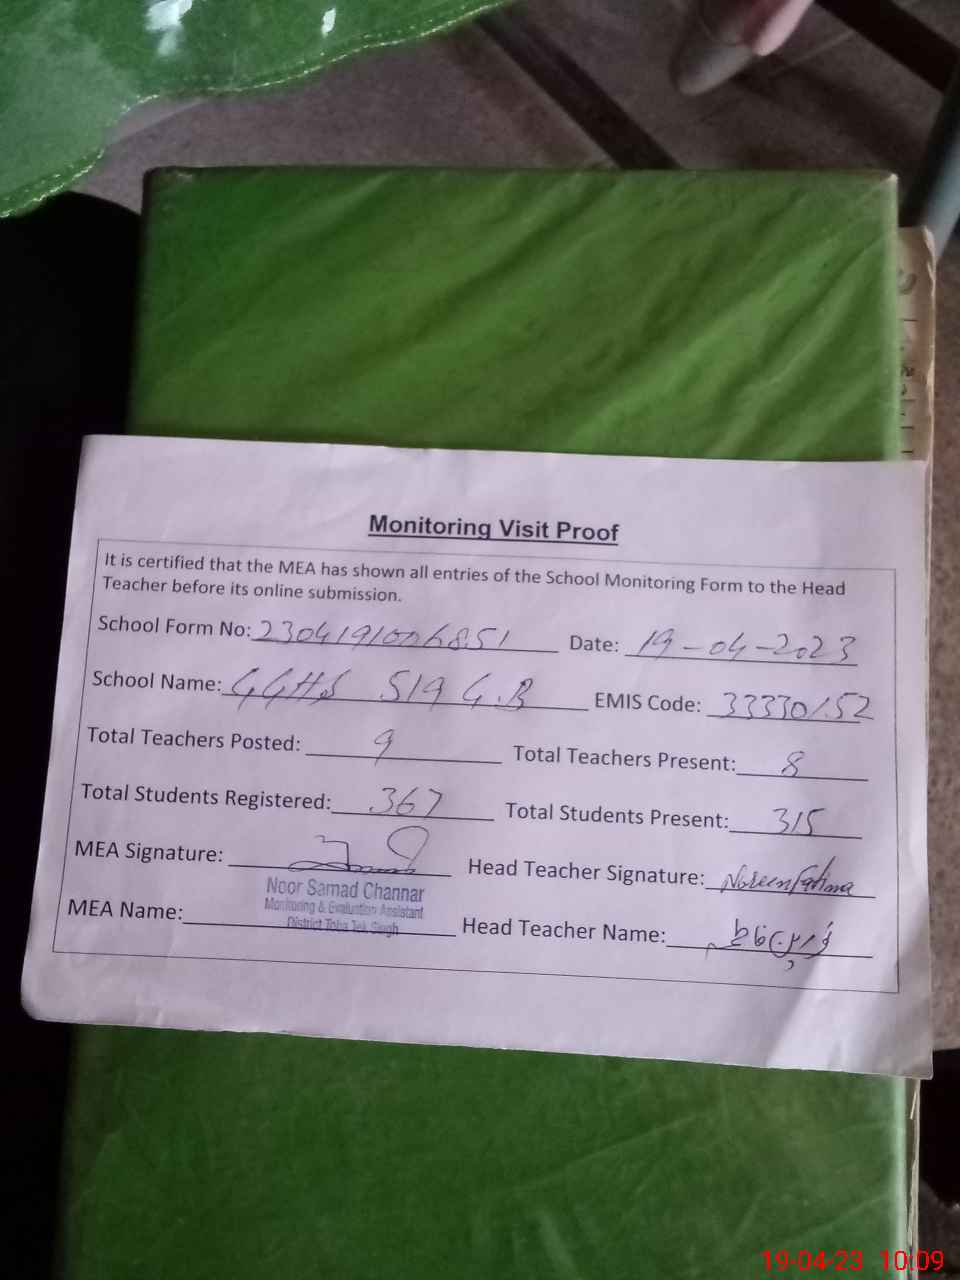 Monitoring Visit Proof
It is certified that the MEA has shown all entries of the School Monitoring Form to the Head
Teacher before its online submission.
School Form No: 2304191006851 Date: 19-04-2023
School Name: GGHS 519 G.B EMIS Code: 33330152
Total Teachers Posted: 9 Total Teachers Present: 8
Total Students Registered: 367 Total Students Present: 315
MEA Signature: Head Teacher Signature: Noreen Fatima
Noor Samad Channar
Monitoring & Evaluation Assistant
District Toba Tek Singh
MEA Name: Head Teacher Name:
19-04-23 10:09